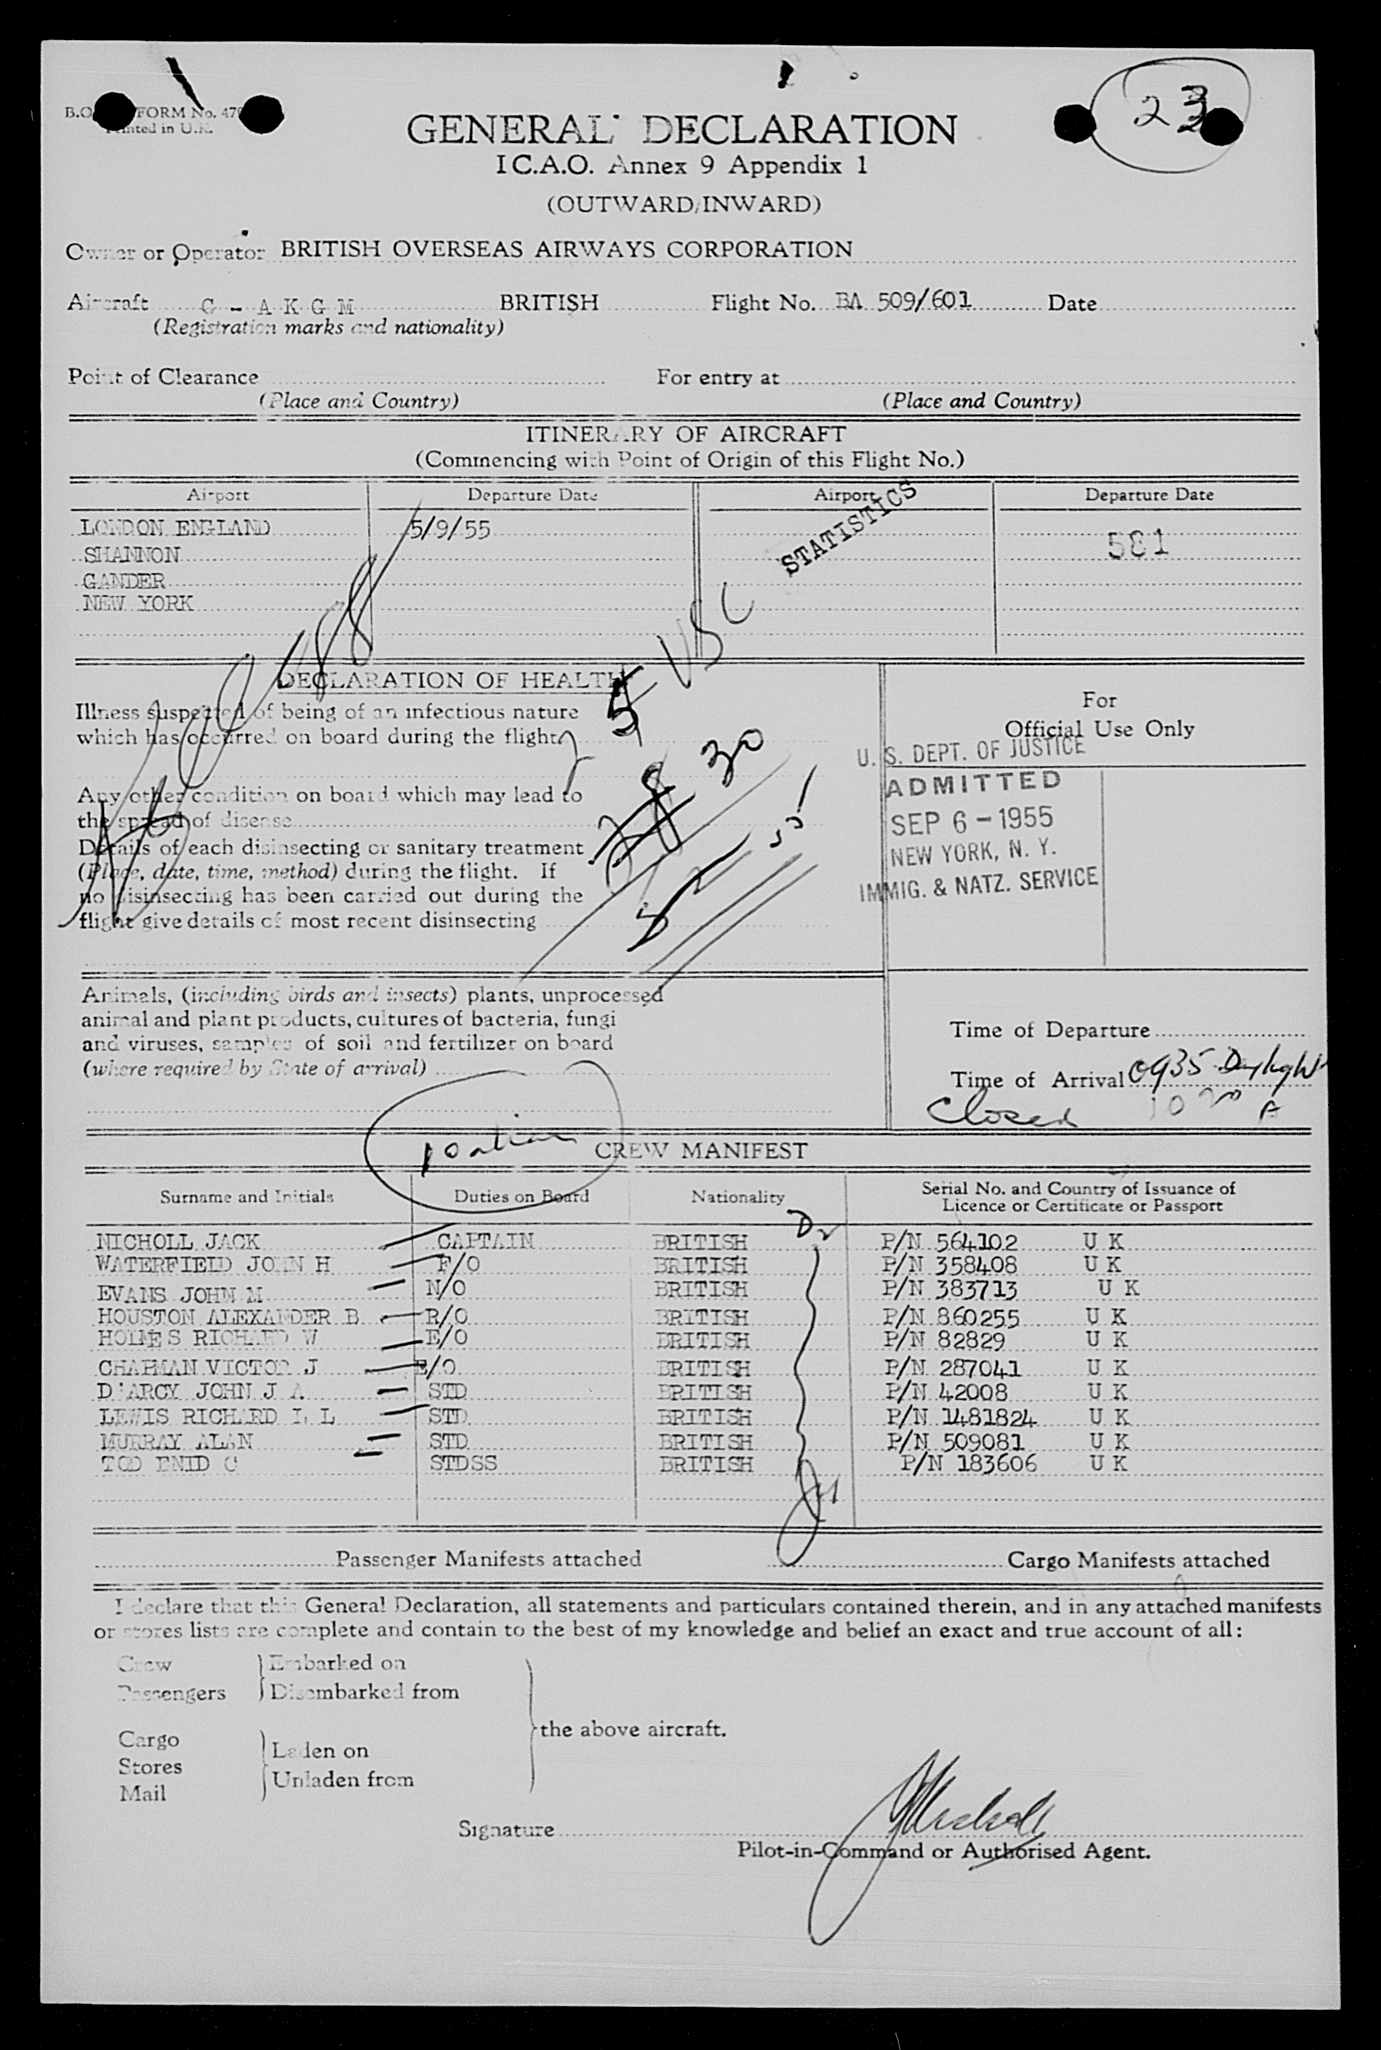 FORM No. 47
Printed in U.K.
23
GENERAL DECLARATION
I C.A.O. Annex 9 Appendix 1
(OUTWARD/INWARD)
Owner or Operator BRITISH OVERSEAS AIRWAYS CORPORATION
Aircraft G - A K G M BRITISH Flight No. BA 509/601 Date
(Registration marks and nationality)
Point of Clearance For entry at
(Place and Country) (Place and Country)
ITINERARY OF AIRCRAFT
(Commencing with Point of Origin of this Flight No.)
Airport Departure Date Airport Departure Date
LONDON ENGLAND 5/9/55
SHANNON
GANDER
NEW YORK
STATISTICS
581
5 USC
30
DECLARATION OF HEALTH
Illness suspected of being of an infectious nature
which has occurred on board during the flight
Any other condition on board which may lead to
the spread of disease
Details of each disinsecting or sanitary treatment
(Place, date, time, method) during the flight. If
no disinsecting has been carried out during the
flight give details of most recent disinsecting
For
Official Use Only
U. S. DEPT. OF JUSTICE
ADMITTED
SEP 6 - 1955
NEW YORK, N. Y.
IMMIG. & NATZ. SERVICE
Animals, (including birds and insects) plants, unprocessed
animal and plant products, cultures of bacteria, fungi
and viruses, samples of soil and fertilizer on board
(where required by State of arrival)
Time of Departure
Time of Arrival 0935 Daylight
Closed 1020 A
CREW MANIFEST
Surname and Initials Duties on Board Nationality Serial No. and Country of Issuance of
Licence or Certificate or Passport
NICHOLL JACK CAPTAIN BRITISH P/N 564102 U K
WATERFIELD JOHN H F/O BRITISH P/N 358408 U K
EVANS JOHN M N/O BRITISH P/N 383713 U K
HOUSTON ALEXANDER B R/O BRITISH P/N 860255 U K
HOLMES RICHARD W E/O BRITISH P/N 82829 U K
CHAPMAN VICTOR J E/O BRITISH P/N 287041 U K
D'ARCY JOHN J A STD BRITISH P/N 42008 U K
LEWIS RICHARD L L STD BRITISH P/N 1481824 U K
MURRAY ALAN STD BRITISH P/N 509081 U K
TOD ENID C STDSS BRITISH P/N 183606 U K
Passenger Manifests attached Cargo Manifests attached
I declare that this General Declaration, all statements and particulars contained therein, and in any attached manifests
or stores lists are complete and contain to the best of my knowledge and belief an exact and true account of all:
Crew Embarked on
Passengers Disembarked from
the above aircraft.
Cargo
Stores Laden on
Mail Unladen from
Signature JNicholl
Pilot-in-Command or Authorised Agent.